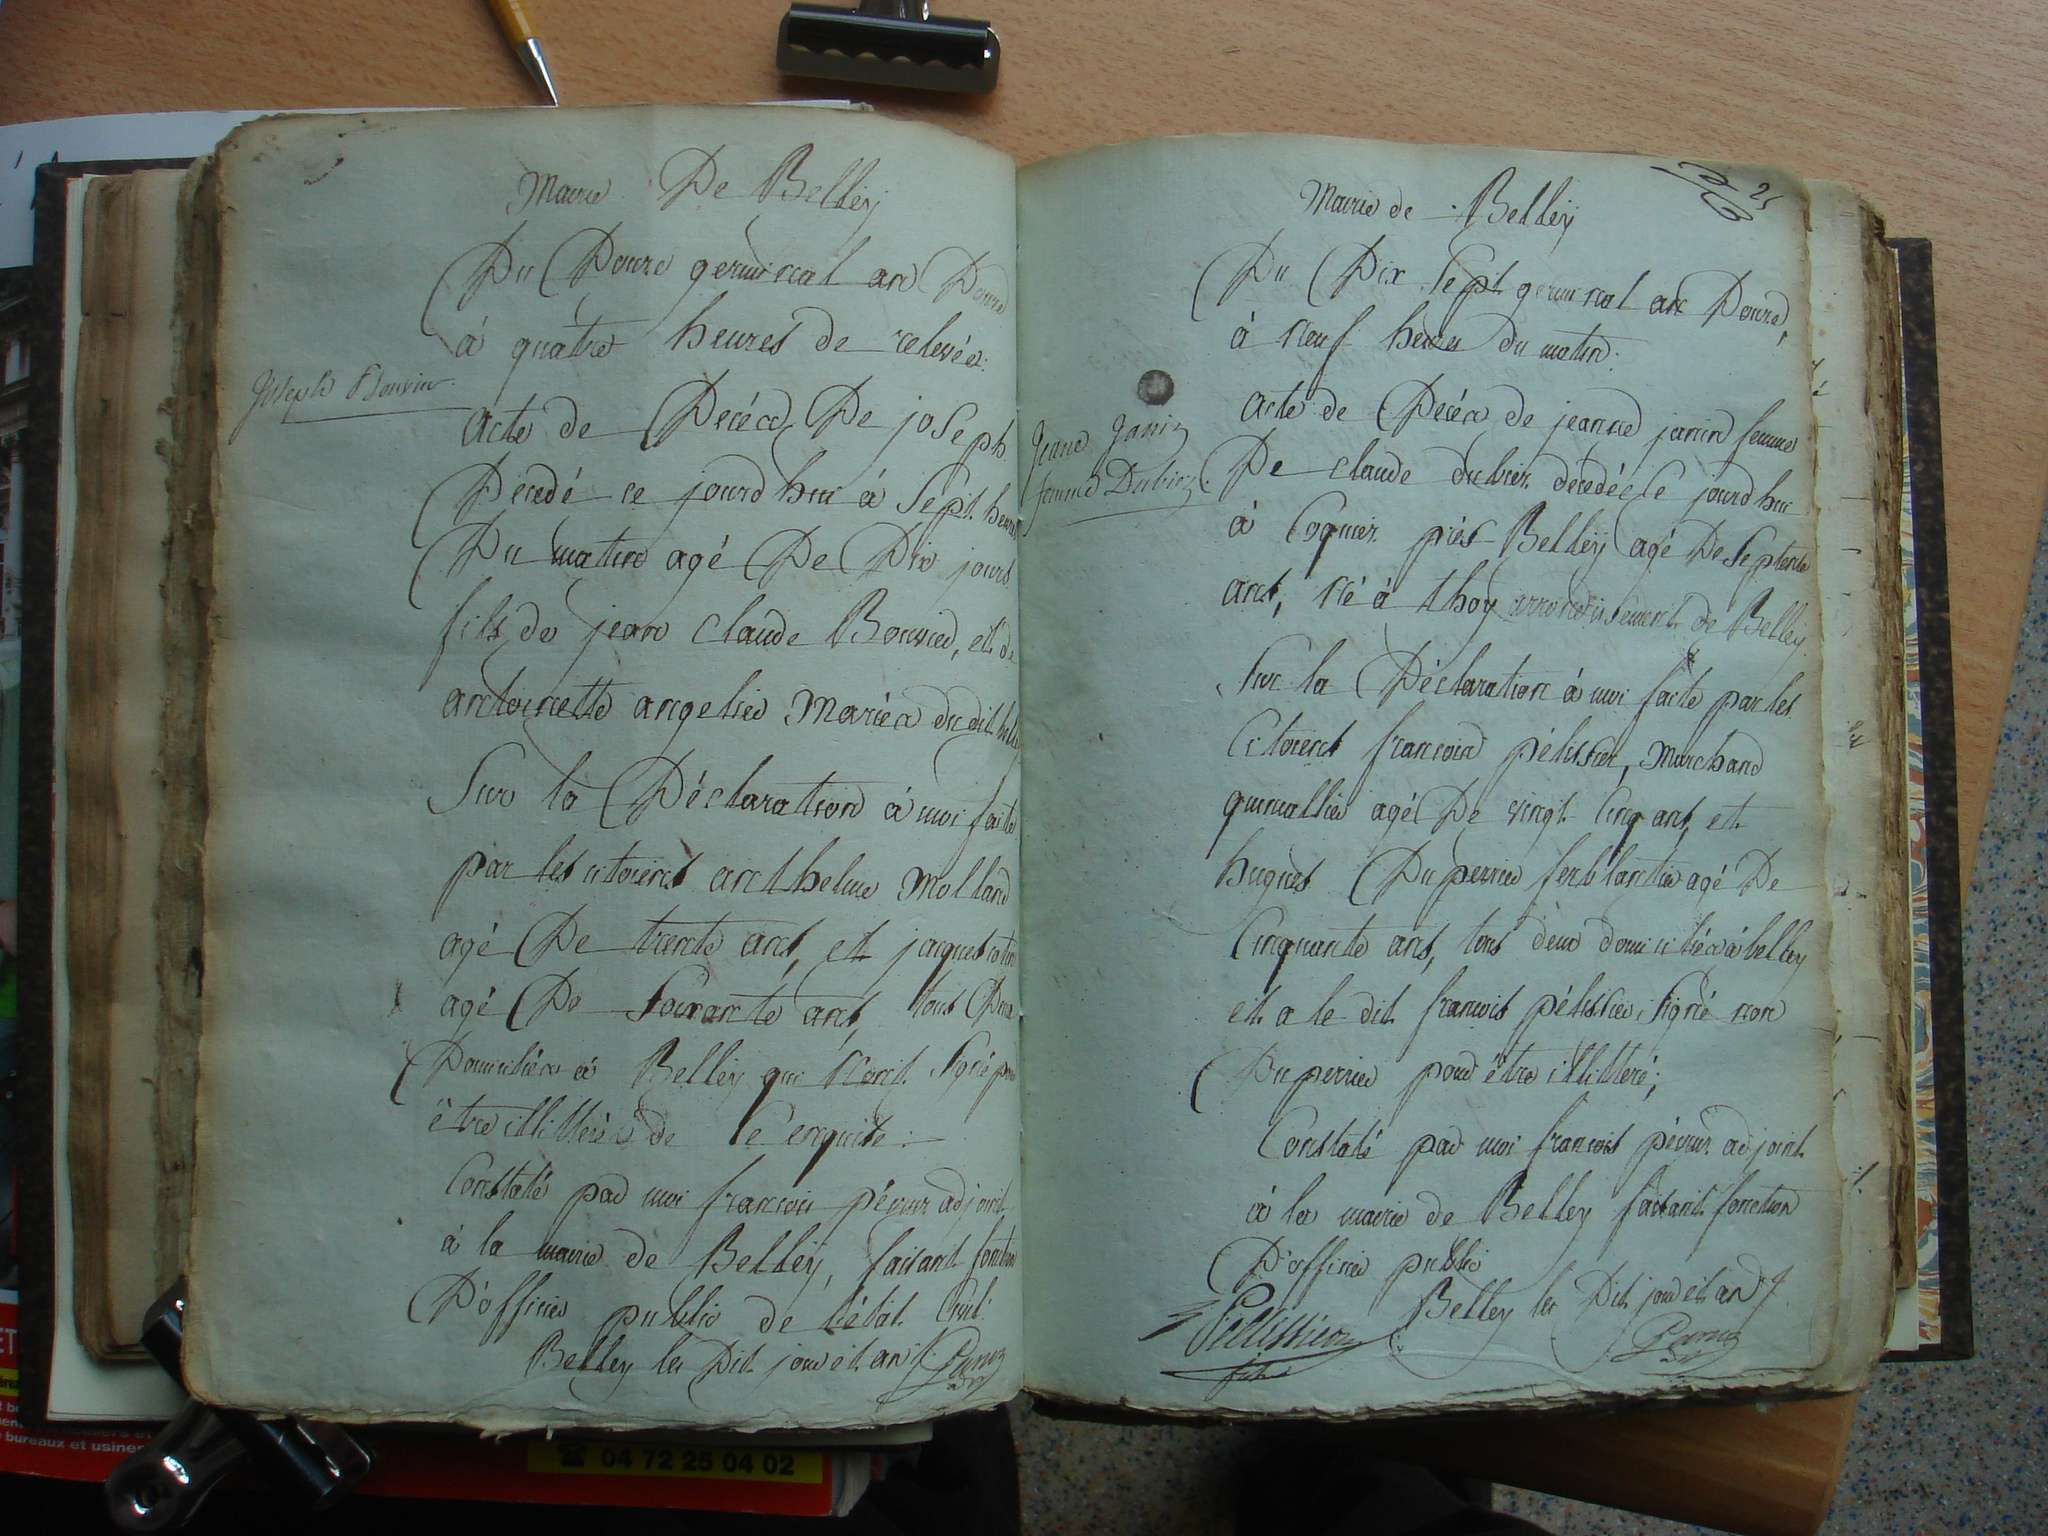 Mairie De Bellëy
Du Douze germinal an Douze
à quatre heures de relevée.
Joseph Bouvier
acte de Décéd De joseph
Décédé ce jourd'hui à sept heures
Du matin agé De Dix jours
fils de jean claude Bouvier, et de
antoinette angelier Mariéd du dit
Sur la Déclaration à moi faite
par les citoiens anthelme Molland
agé De trente ans, et jacques
agé De Soixante ans, tous Deux
Domiciliéd à Belley qui n'ont Signé pour
être illitteréd de ce enquis.
Constaté par moi françois adjoint
à la mairie de Bellëy, faisant fonction
D'officier public de l'état Civil.
Belley les Dit jour et an
Mairie de Bellëy
25
Du Dix Sept germinal an Douze,
à neuf heures du matin.
Jeane Janin
femme Dubiez.
acte de Décéd de jeanne janin femme
De claude dubiez décédée ce jourd'hui
à Coquiez près Bellëy agé De Septente
ans, né à thoy arrondissement de Belley.
Sur la Déclaration à moi faite par les
Citoiens françois pélissier, Marchand
quincallier agé De vingt Cinq ans, et
hugues Duperrier ferblantier agé De
Cinquante ans, tous deux domiciliéd à belley
et a le dit françois pélissier, Signé non
Duperrier pour être illitteré;
Constaté par moi françois adjoint
à la mairie de Belley faisant fonction
D'officier public
Belley les Dit jour et an
Pellissier
fils
04 72 25 04 02
bureaux et usines